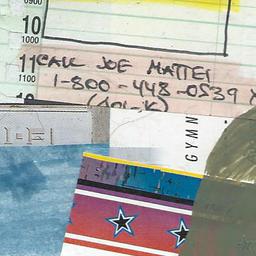 0900
10
1000
11 CALL JOE MATTEI
1100 1-800-448-0539 X
(401-K)
GYMN